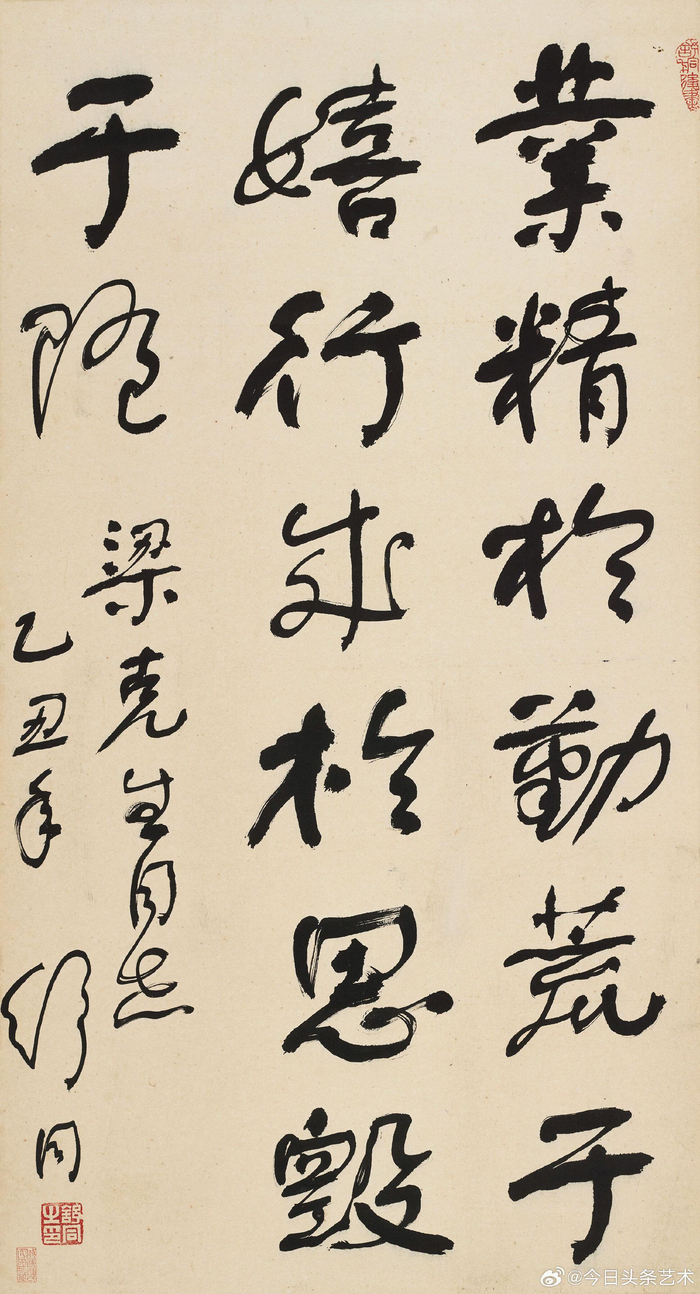 業精於勤荒于
嬉行成於思毀
于随
梁克生同志
乙丑年 舒同
舒同之印
@今日头条艺术